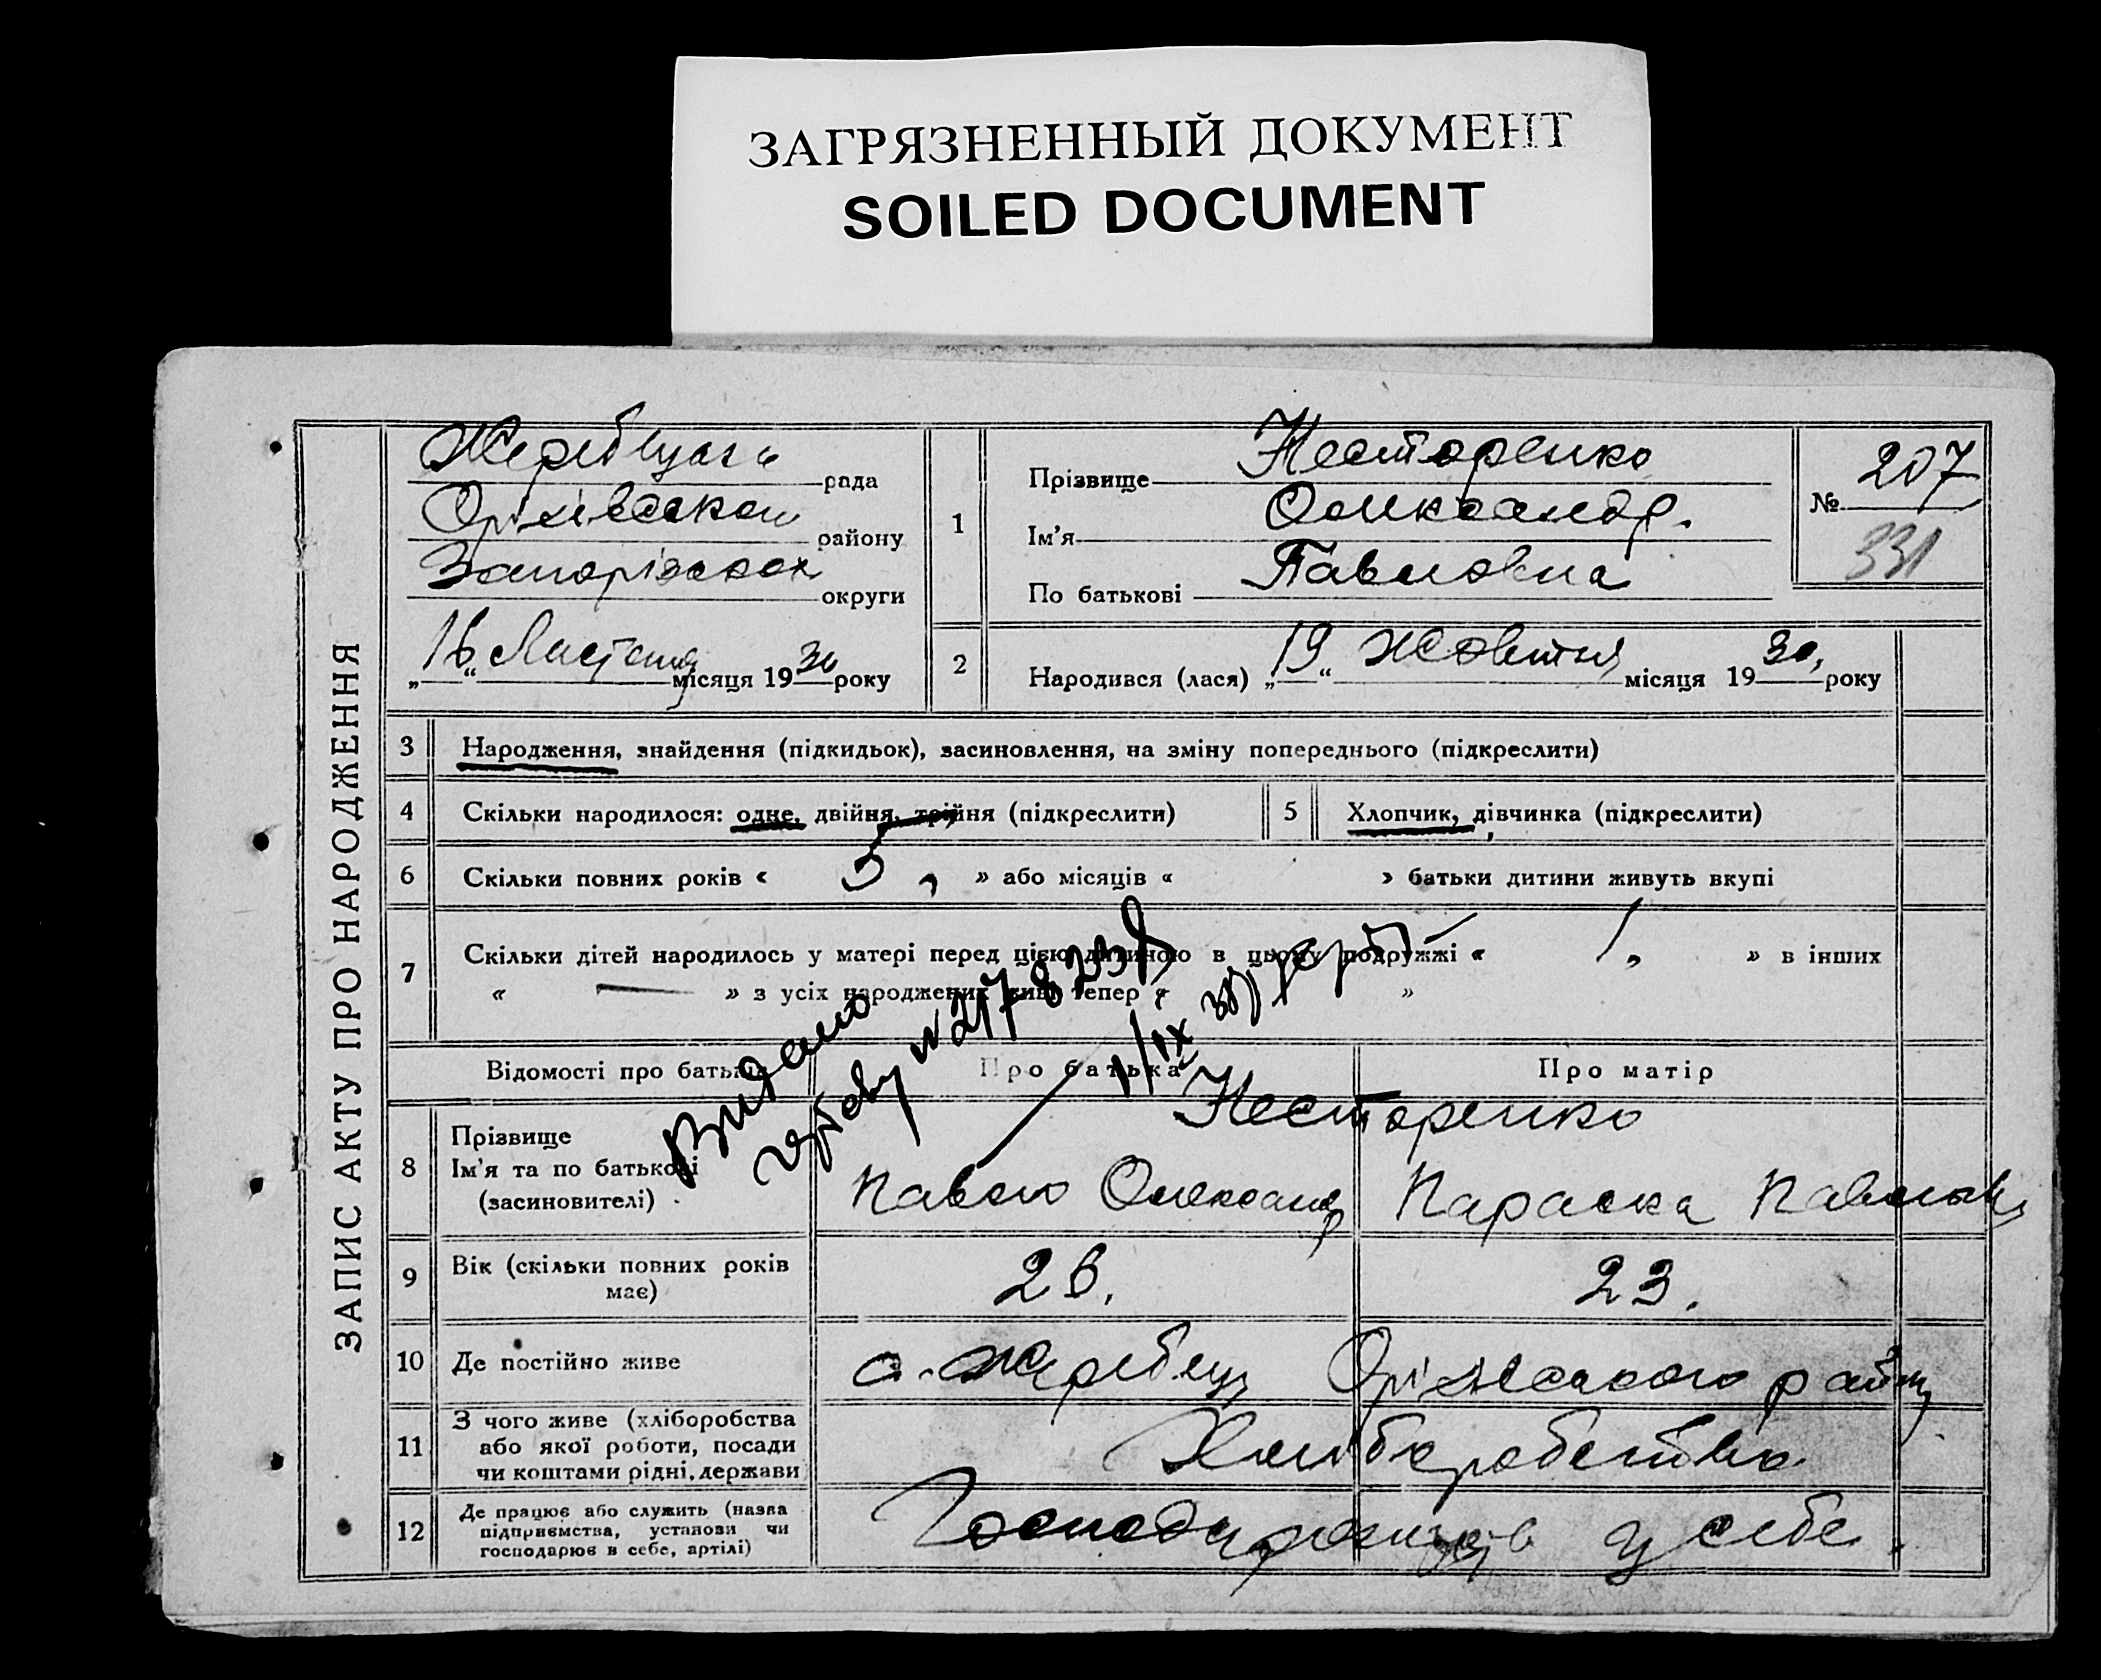 ЗАГРЯЗНЕННЫЙ ДОКУМЕНТ
SOILED DOCUMENT
ЗАПИС АКТУ ПРО НАРОДЖЕННЯ
рада
району
округи
„16“ Листопад місяця 1930 року
1
Прізвище Несторенко
Ім'я Олександр.
По батькові Павловна
№ 207
331
2
Народився (лася) „19“ Жовтня місяця 1930, року
3 Народження, знайдення (підкидьок), засиновлення, на зміну попереднього (підкреслити)
4 Скільки народилося: одне, двійня, трійня (підкреслити)
5 Хлопчик, дівчинка (підкреслити)
6 Скільки повних років « 5, » або місяців « » батьки дитини живуть вкупі
7 Скільки дітей народилось у матері перед цією дитиною в цьому подружжі « 1, » в інших
« — » з усіх народжених живі тепер « »
Видано
№ 217823
Відомості про батьків
Про батька
Про матір
8
Прізвище
Ім'я та по батькові
(засиновителі)
Несторенко
Павло Олександр
Параска Павлов
9 Вік (скільки повних років має)
26.
23.
10 Де постійно живе
с. Жеребец Оріхівського району
11 З чого живе (хліборобства
або якої роботи, посади
чи коштами рідні, держави
Хліборобство
12 Де працює або служить (назва
підприємства, установи чи
господарює в себе, артілі)
у себе.